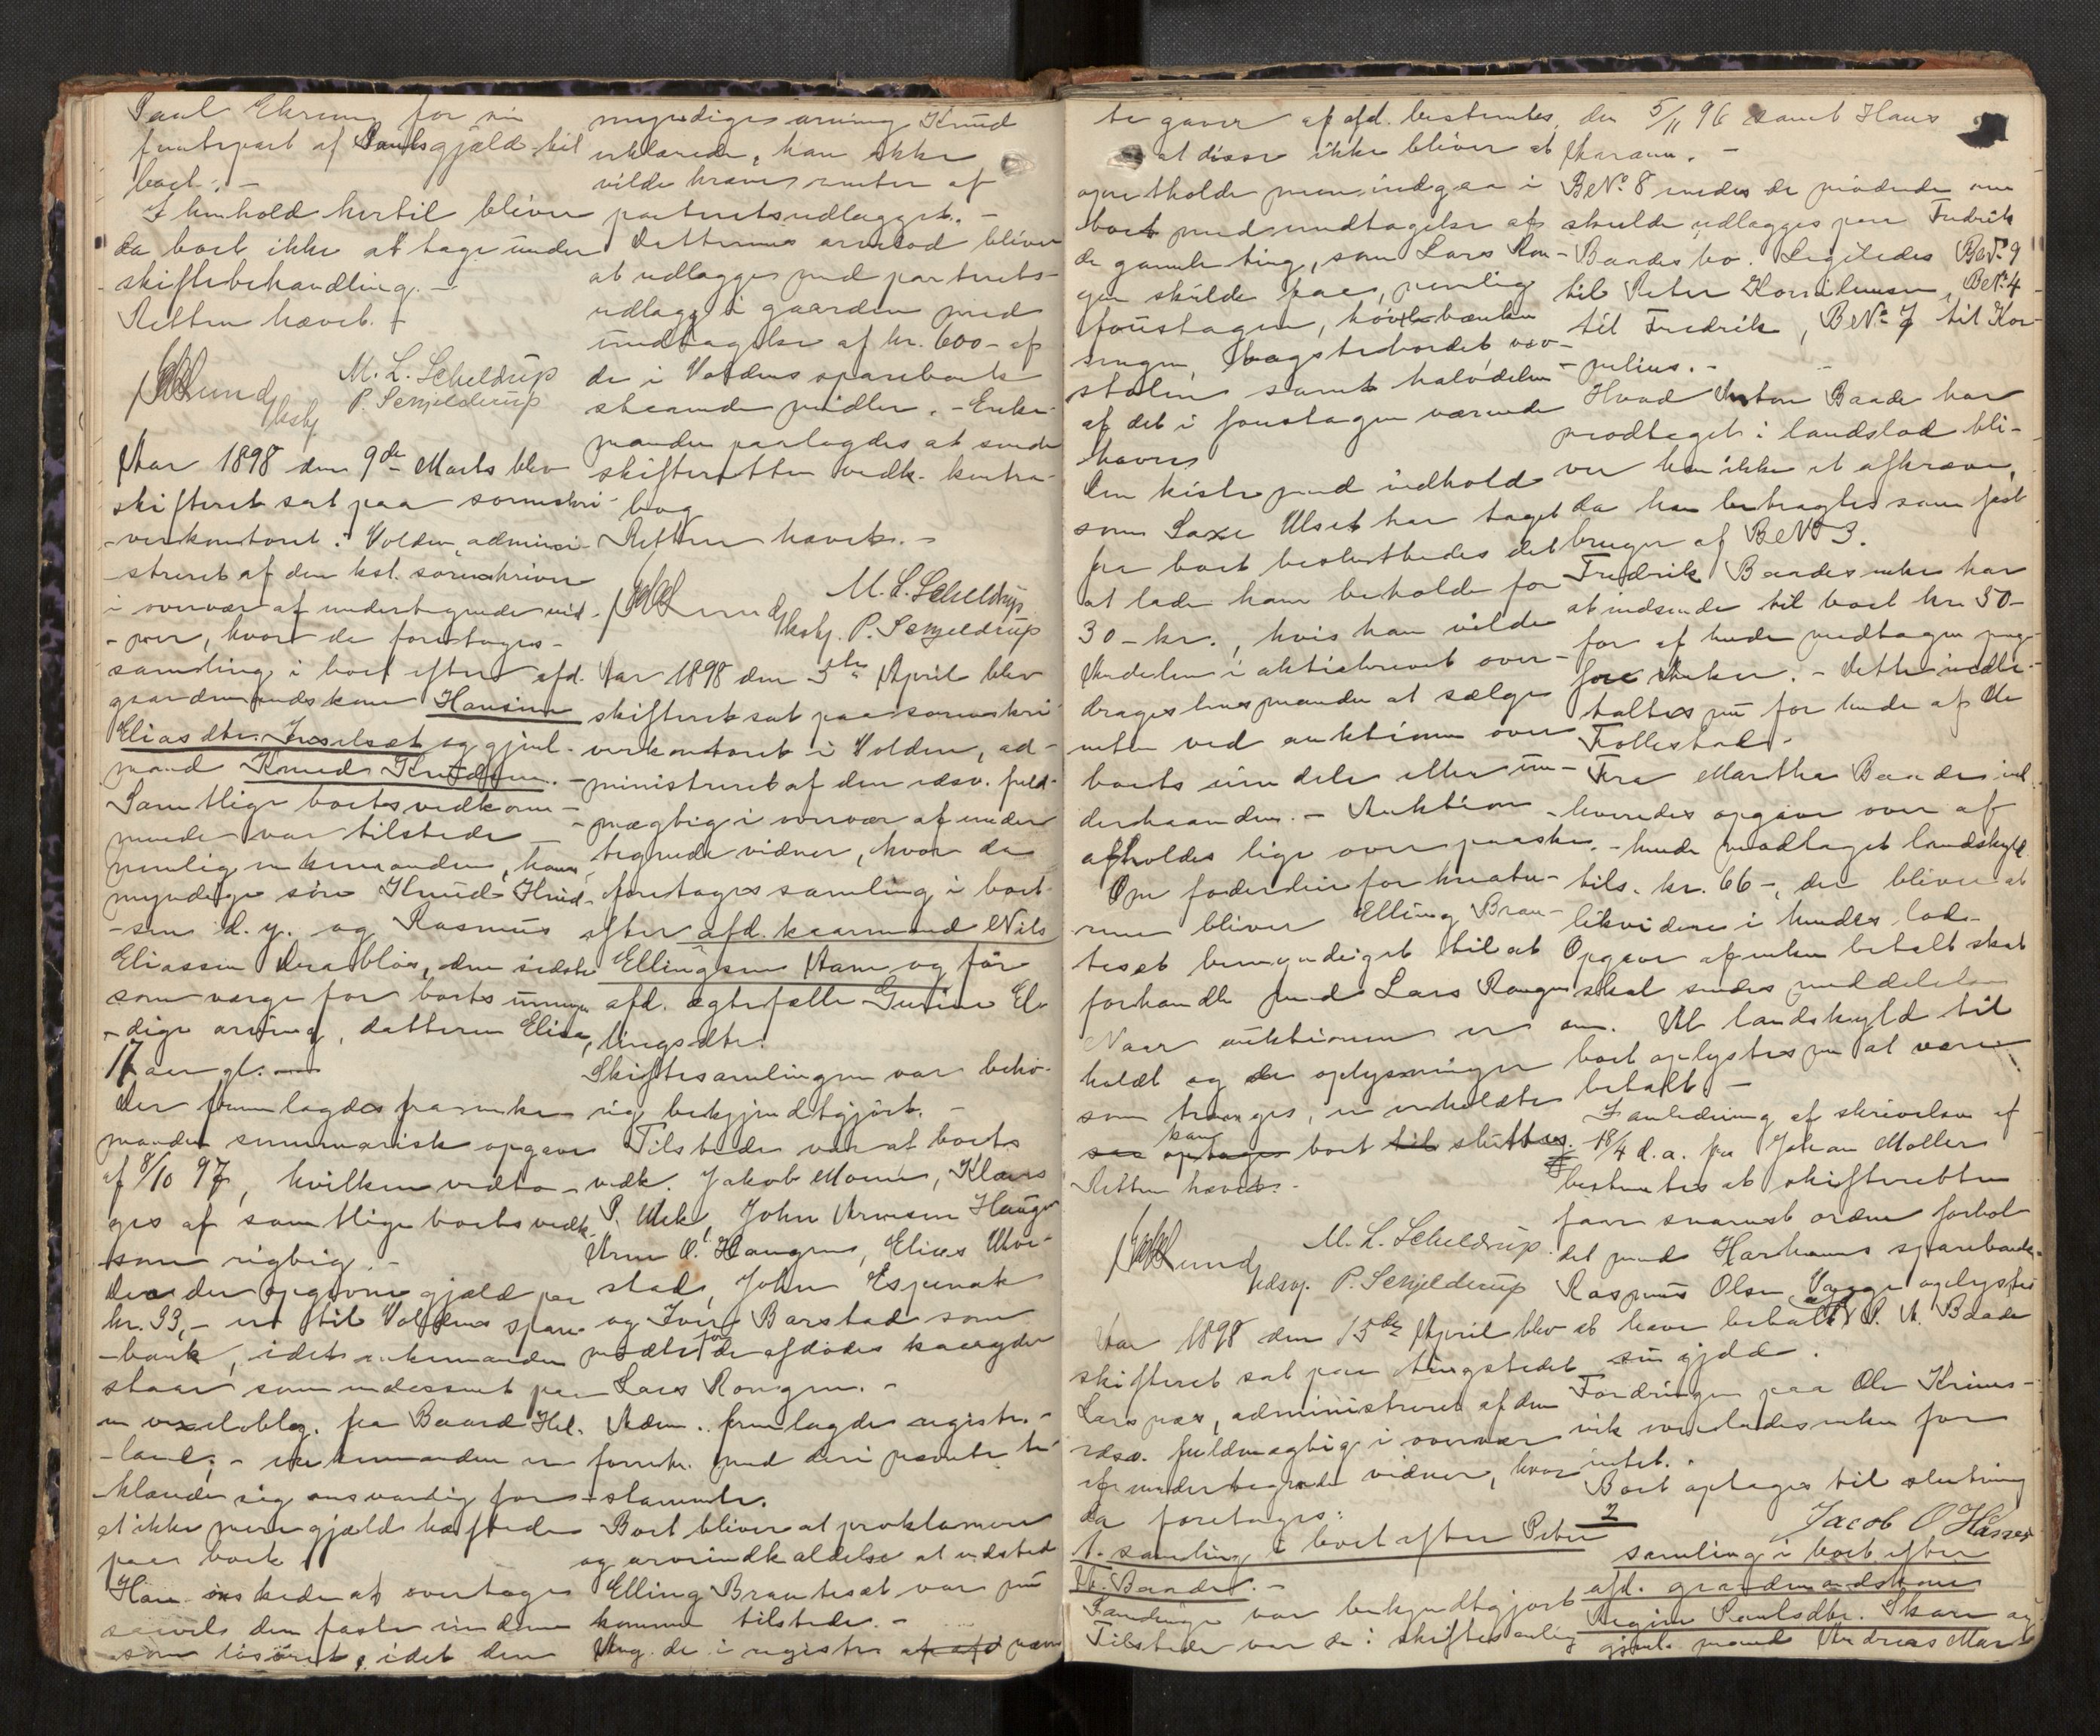 Paul Ekrem for sin
part af Pauls gjæld til
boet. -
I henhold hertil bliver
da boet ikke at tage under
skiftebehandling. -
Retten hævet. -
M. L. Scheldrup
P. Schjelderup
Aar 1898 den 9de Marts blev
skifteret sat paa sorenskri-
verkontoret i Volden, admini-
streret af den kst. sorenskriver
i overvær af undertegnede vid-
ner, hvor da foretoges
samling i boet efter afd.
gaardmandskone Hansine
Eliasdtr. og gjenl.
mand Knud Knudsen. -
Samtlige boets vedkom-
mende var tilstede
nemlig enkemanden, hans
myndige søn Knud Knud-
sen d. y. og Rasmus
Eliassen Drabløs, den sidste
som værge for boets umyn-
dige arving, datteren Elise,
17 aar gl. -
Der fremlagdes fra enke-
manden summarisk opgave
af 8/10 97, hvilken vedto-
ges af samtlige boets vedk.
som rigtig. -
Den der opgivne gjæld paa
kr. 33,- er til Voldens spare-
bank, idet enkemanden
staar som indossent paa
en vexeloblg. fra Baard Hel-
land; - enkemanden er-
klærede sig ansvarlig for
at ikke mere gjæld hæftede
paa boet.
Han ønskede at overtage
saavel den faste eiendom
som løsøret, idet den
myndige arving Knud
erklærede, han ikke
vilde kræve renter af
portretsudlægget. -
Datterens arvelod bliver
at udlægges med portrets-
udlæg i gaarden med
undtagelse af kr. 600 - af
de i Voldens sparebank
staaende midler. - Enke-
manden paalagdes at sende
skifteretten vedk. kontra-
bog
Retten hævet. -
M. L. Scheldrup
P. Schjelderup
Aar 1898 den 5te April blev
skifteret sat paa sorenskri-
verkontoret i Volden, ad-
ministreret af den edsv. fuld-
mægtig i overvær af under-
tegnede vidner, hvor da
foretoges samling i boet
efter afd. kaarmand Nils
Ellingsen Aam og før
afd. ægtefælle Gurine El-
lingsdtr.
Skiftesamlingen var behø-
rig bekjendtgjort. -
Tilstede var af boets
vedk. Jakob Moene, Klaus
P. Mek, John Arnesen Haugen
Arne O. Haugen, Elias
stad, John Espenak
og Iver Barstad som
mødte for de afdødes kaaryder
Lars Rongen. -
Adm. fremlagde registr.-
forretn. med deri nævnte te-
stamente.
Boet bliver at proklamere
og arveindkaldelse at udstede
Elling Brautesæt var nu
kommen tilstede. -
Ang. de i registr. af afd nævn
te gaver af afd. bestemtes,
at disse ikke bliver at
opretholde men indgaa i
boet med undtagelse af
de gamle ting, som Lars Ron-
gen skulde faa, nemlig
foustagen, høvlbænken
sengen, bagstebordet, væv-
stolen samt halvdelen
af det i foustagen værende
havre
Den kiste med indhold
som Laxe Ulset har taget
fra boet besluttedes det
at lade ham beholde for
30 - kr., hvis han vilde
Andelen i aktiebrevet over-
drages lensmanden at sælge
enten ved auktionen over
boets eiendele eller un-
derhaanden. - Auktion
afholdes lige over paaske. -
Om foderdeie for kreatu-
rene bliver Elling Brau-
tesæt bemyndiget til at
forhandle med Lars Rongen
Naar auktionen er
holdt og de oplysninger
som trænges, er indhentede
kan boet sluttes.
Retten hævet. -
M. L. Scheldrup.
P. Schjelderup
Aar 1898 den 15de April blev
skifteret sat paa tingstedet
Larsnes, administreret af den
edsv. fuldmægtig i overvær
af undertegnede vidner, hvor
da foretoges:
1. samling i boet efter Peter
A. Baade. -
Samlingen var bekjendtgjort
Tilstede var de i skiftesamling
den 5/11 96 samt Hans
Skaraun. -
Be No 8 endes de mødende om
skulde udlægges paa Fredrik
Baades bo. Ligeledes Be No 9
til Peter Korneliussen, Be No 4
til Fredrik, Be No 7 til Kor-
nelius. -
Hvad Anton Baade har
modtaget i landslod bli-
ver han ikke at afkræve,
da han betragtes som fæst
bruger af Be No 3.
Fredrik Baades enke har
at indsende til boet kr 50 -
for af hende modtagen
for - Dette indbe-
taltes nu for hende af Ole
Follestad.
Fra Martha Baade ind-
leveredes opgave over af
hende modtaget landskyld
tils. kr. 66 -, der bliver at
likvidere i hendes lod.
Opgave af enken betalt skat
skal sendes meddelelse
om. Al landskyld til
boet oplystes nu at være
betalt -
I anledning af skrivelse af
18/4 d. a. fra Johan Møller
bestemtes at skifteretten
faar snarest ordne forhol-
det med Harhams sparebank.
Rasmus Olsen Vaage oplystes
at have betalt P. A. Baade
sin gjæld.
Fordringen paa Ole Krums-
vik overlades enken for
intet.
Boet optages til slutning
Jacob O Hasnes
2
samling i boet efter
afd. gaardmandskone
Regine Paulsdtr. Skare og
gjenl. mand Andreas Mar